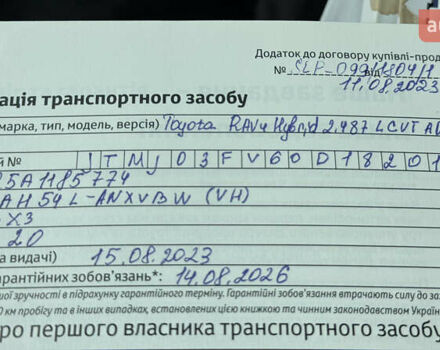 Додаток до договору купівлі-прод
№ CLP-099/1804/1
від 11.08.2023
ація транспортного засобу
марка, тип, модель, версія) Toyota RAV4 Hybrid 2.487 L CVT A
й № J T M J 0 3 F V 6 0 D 1 8 2 0 1
25A1185774
AH54L-ANXVBW (VH)
X3
20
а видачі) 15.08.2023
арантійних зобов'язань*: 14.08.2026
шої зручності в підрахунку гарантійного терміну. Гарантійні зобов'язання втрачають силу до за
0 км пробігу та в інших випадках, встановлених цією книжкою та чинним законодавством Україн
ро першого власника транспортного засобу